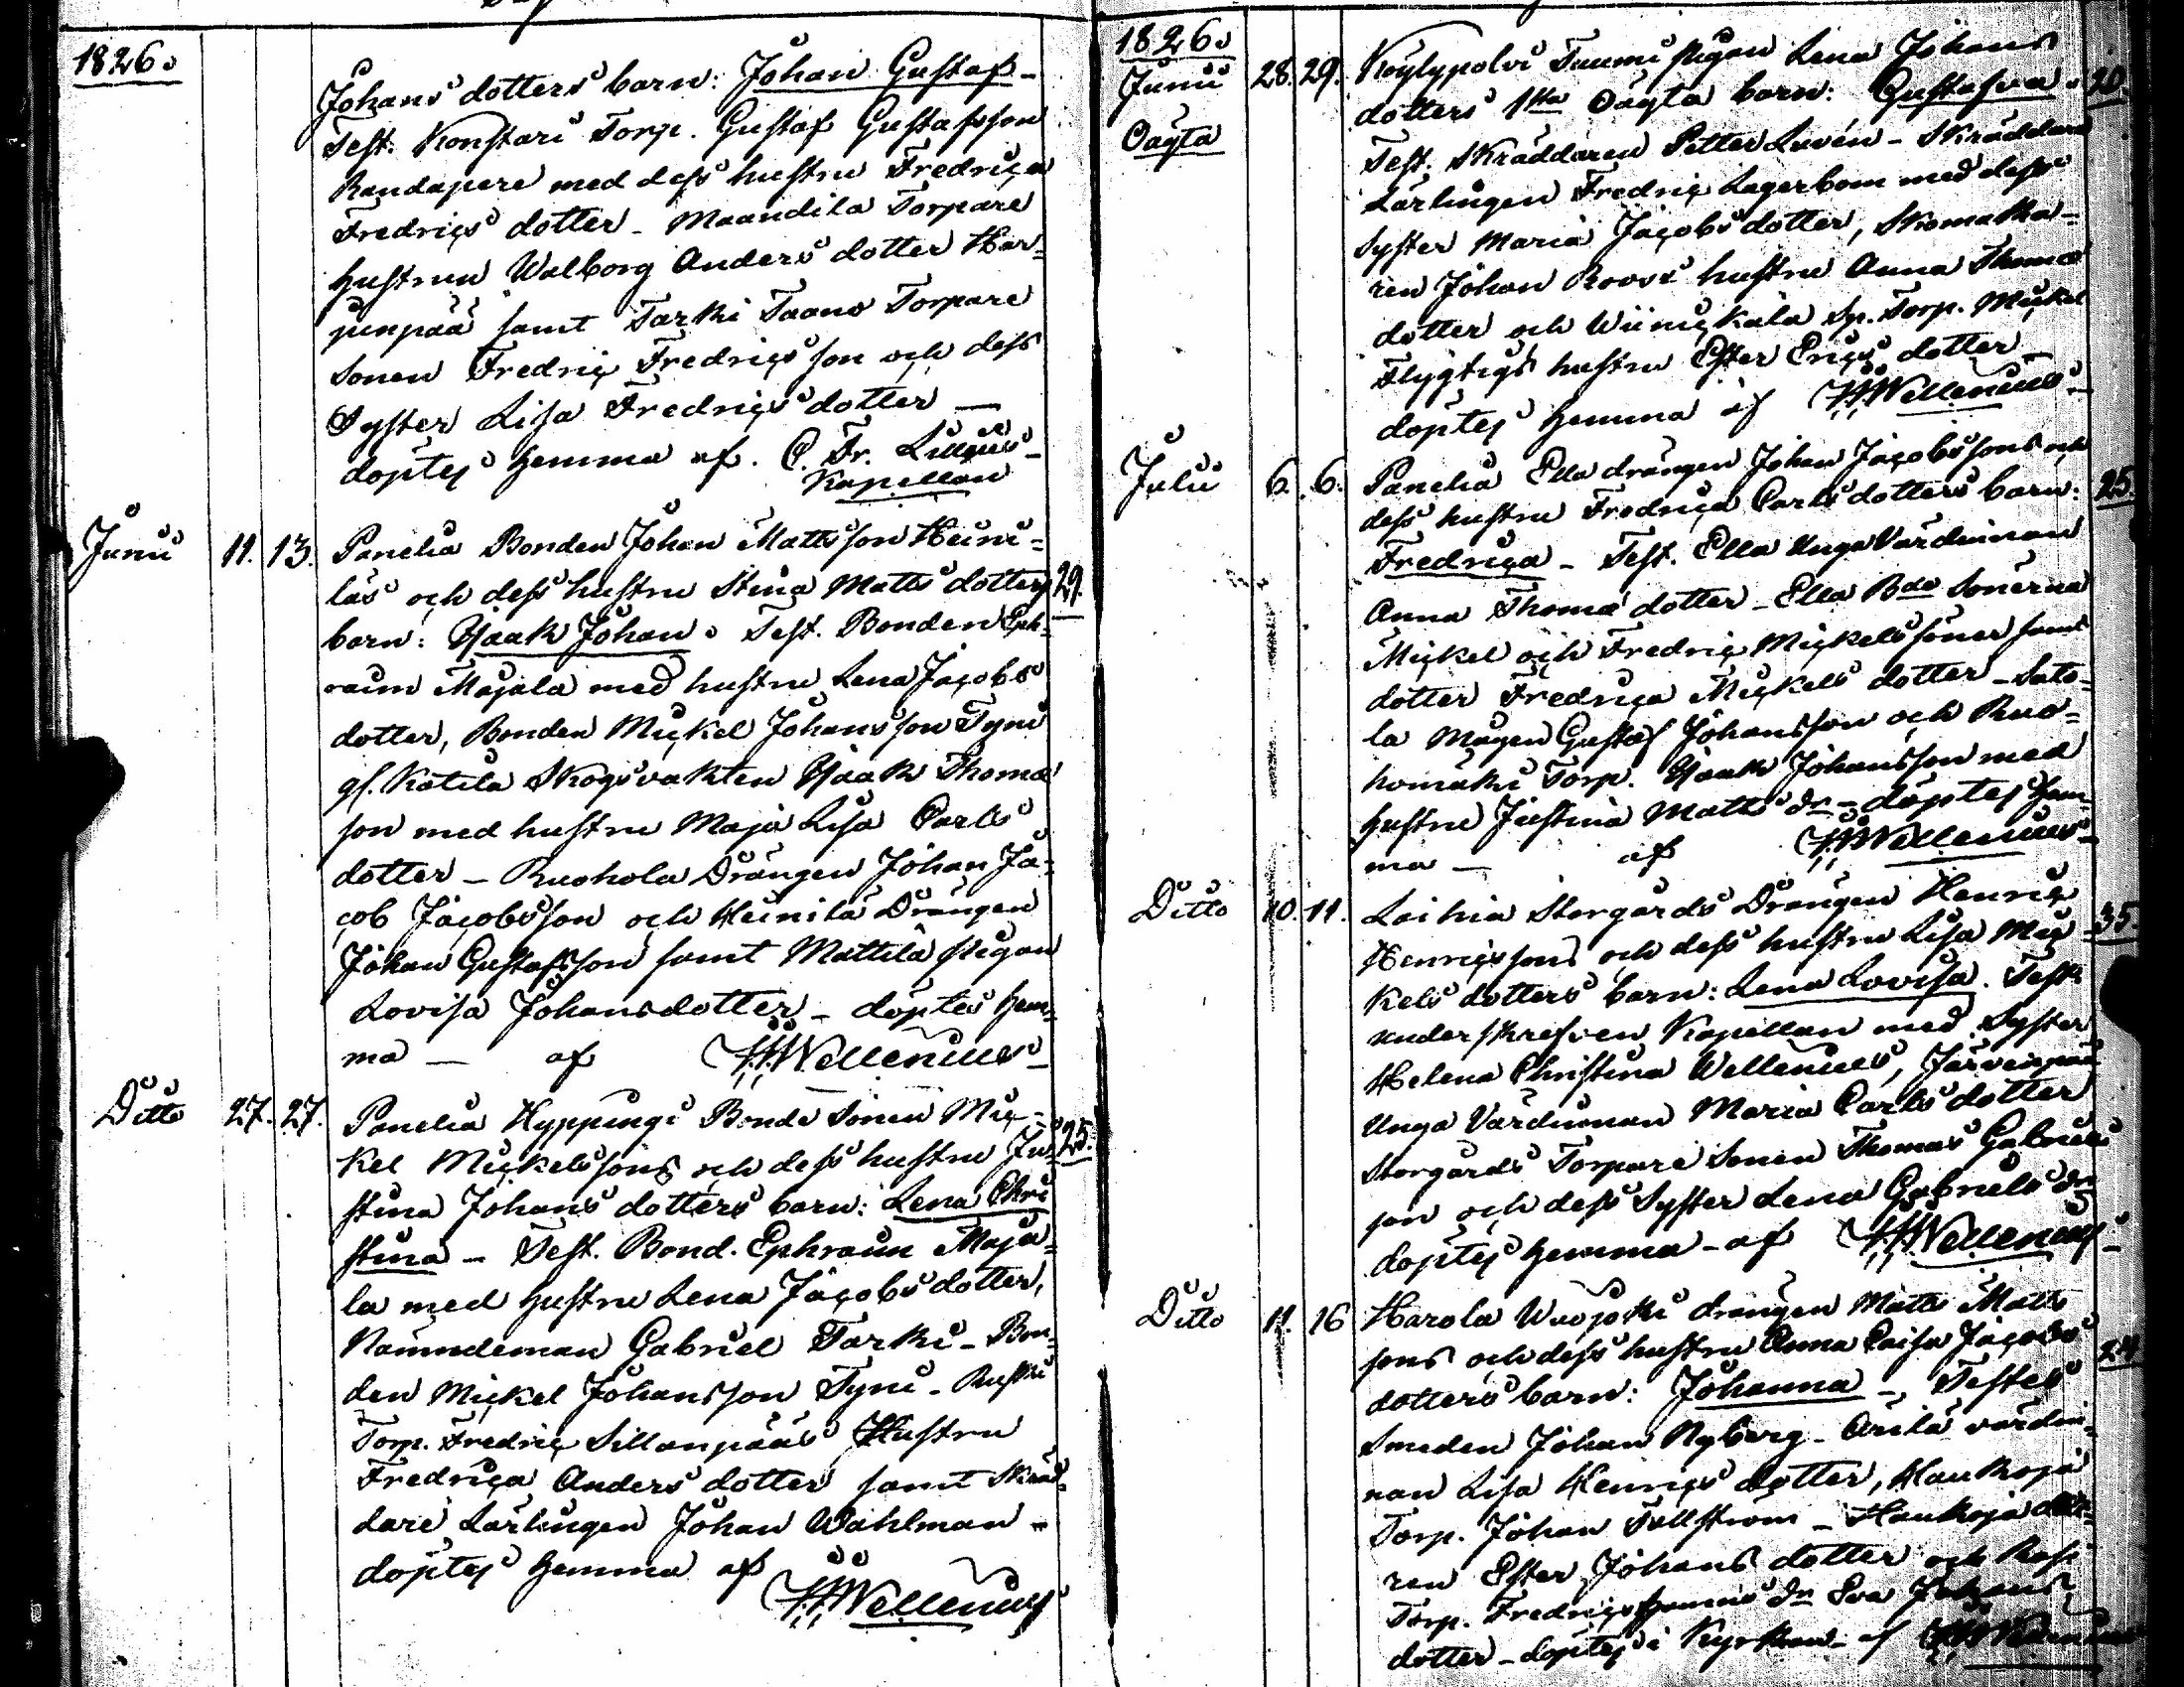 1826.
Johans dotters barn: Johan Gustaf –
Test. Konstari Torp. Gustaf Gustafsson
Randapere med dess hustru Fredrica
Fredrics dotter – Maandila Torpare
hustrun Walborg Anders dotter Har=
junpää samt Tarki Taano Torpare
Sonen Fredric Fredricsson och dess
Syster Lisa Fredrics dotter —
döptes hemma af. C. Fr. Lillius –
Kapellan
Junii 11. 13. Panelia Bonden Johan Mattsson Heini=
läs och dess hustru Stina Matts dotters 29.
barn: Isaak Johan. Test. Bonden Eph=
raim Majala med hustru Lena Jacobs
dotter, Bonden Mickel Johansson Tyni
gl. Katila Skogsvakten Isaak Thomæ
son med hustru Maja Lisa Carls
dotter – Ruohola Drängen Johan Ja=
cob Jacobsson och Heinilä Drängen
Johan Gustafsson samt Mattila pigan
Lovisa Johansdotter – döptes hem=
ma — af Wellenius –
Ditto 27. 27. Panelia Hyppingi Bonde Sonen Mic=
kel Mickelssons och dess hustru Ju= 25.
stina Johans dotters barn: Lena Chri
stina – Test. Bond. Ephraim Maja=
la med hustru Lena Jacobs dotter,
Nämndeman Gabriel Tarki – Bon=
den Mickel Johansson Tyni – Ruski
Torp. Fredric Sillanpääs Hustru
Fredrica Anders dotter samt Skräd=
dare Lärlingen Johan Wahlman –
döptes hemma af
Wellenius
1826.
Junii 28. 29. Köylypolvi Tuumi pigan Lena Johans
Oägta dotters 1sta Oägta barn: Gustafva. 20.
Test. Skräddaren Petter Lovén – Skräddare
Lärlingen Fredric Lagerbom med dess
Syster Maria Jacobs dotter, Skomaka=
ren Johan Roos's hustru Anna Thomæ
dotter och Wiinickala Sp. Torp. Mickel
Flygtigs hustru Ester Erics dotter
döptes hemma af Wellenius –
Julii 6. 6. Panelia Ella drängen Johan Jacobssons och
dess hustru Fredrica Carls dotters barn: 25.
Fredrica – Test. Ella Unga Värdinnan
Anna Thomæ dotter – Ella Bde Sönerna
Mickel och Fredric Mickelssöner samt
dotter Fredrica Mickels dotter – Sato=
la Mågen Gustaf Johansson och Ruo=
homäki Torp. Isaak Johansson med
hustru Justina Matts dr – döptes hem=
ma — af Wellenius –
Ditto 10. 11. Laihia Storgårds Drängen Henric
Henricssons och dess hustru Lisa Mic 35.
kels dotters barn: Lena Lovisa. Test.
underskrefven Kapellan med Syster
Helena Christina Wellenius, Järvenpää
Unga Värdinnan Maria Carls dotter
Storgårds Torpare Sonen Thomas Gabriels
son och dess Syster Lena Gabriels dr
döptes hemma – af Wellenius –
Ditto 11. 16 Harola Wuojoki drängen Matts Matts
sons och dess hustru Anna Caisa Jacobs 24.
dotters barn: Johanna – Testes
Smeden Johan Nyberg – Arilä värdin=
nan Lisa Henrics dotter, Haukoja
Torp. Johan Tallström – Haukoja
ren Ester Johans dotter och Rasi
Torp. Fredric dr Eva Johans
dotter – döptes i Kyrkan – af Wellenius